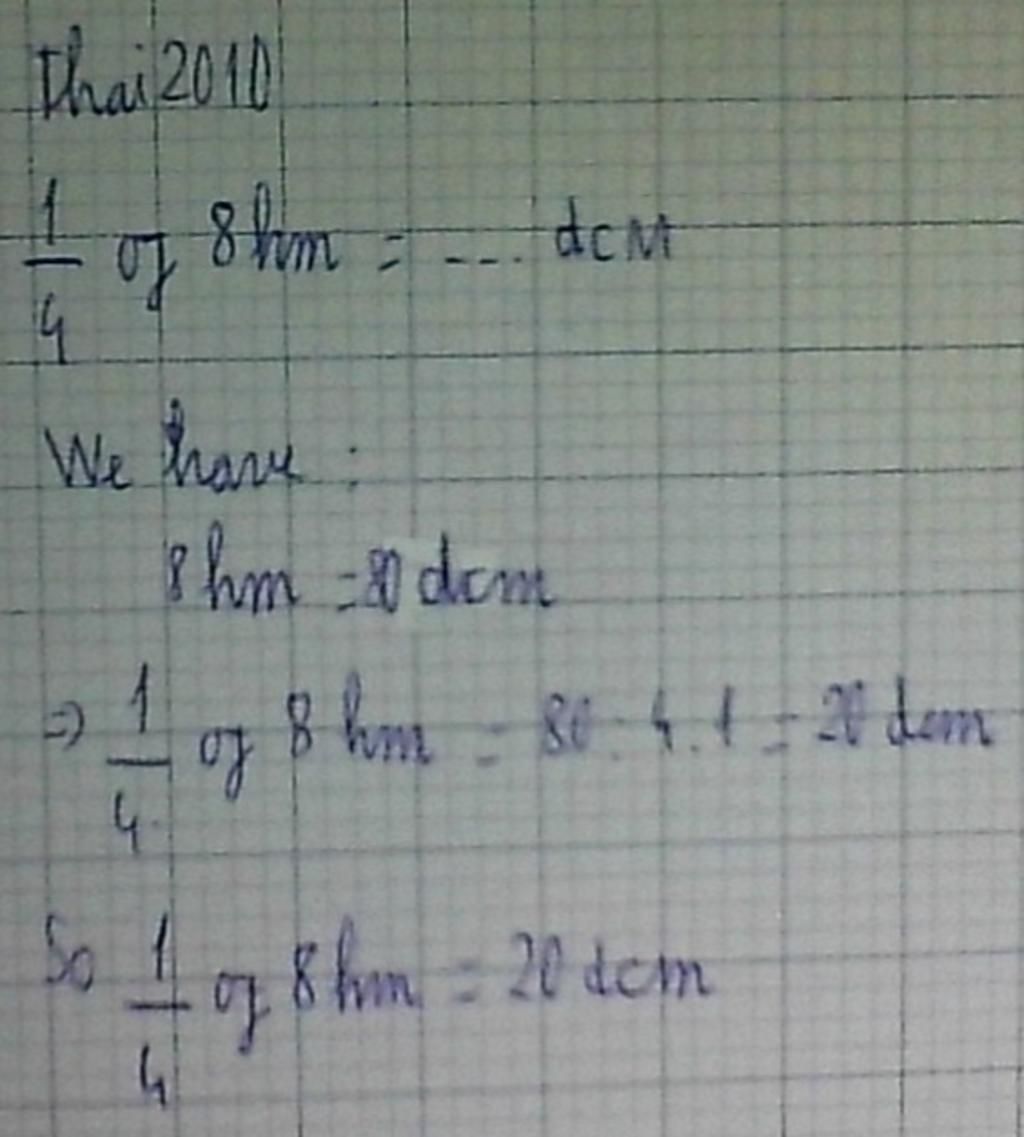 Thai2010
1/4 of 8hm = .... dcM
We have :
8 hm = 80 dcm
=> 1/4 of 8 hm = 80 : 4 . 1 = 20 dcm
So 1/4 of 8 hm = 20 dcm